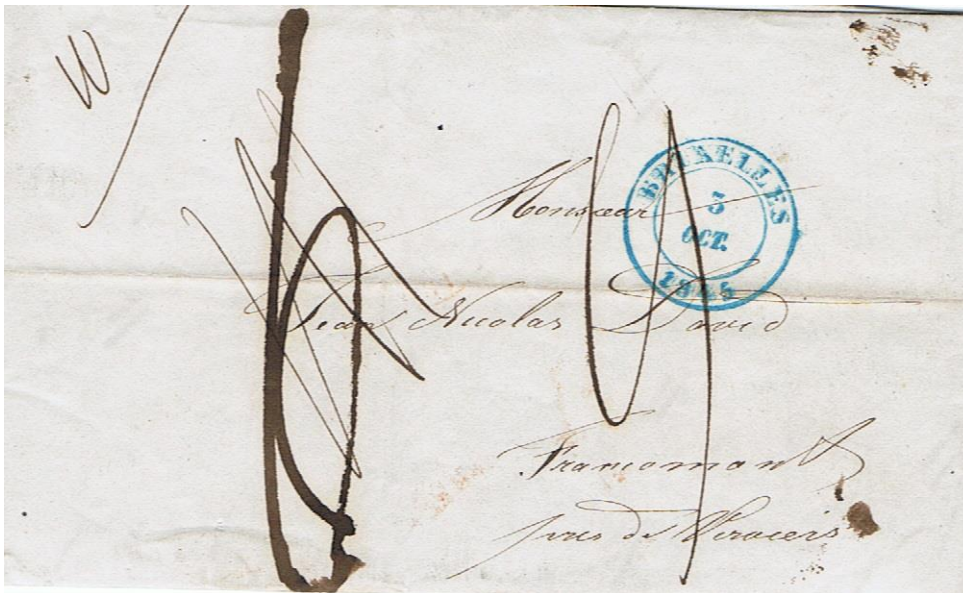 BRUXELLES
5
OCT.
1845
Monsieur
Jean Nicolas David
Francomont
près de Verviers